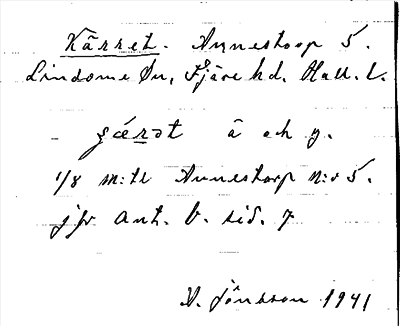 Kärret. Annestorp 5.
Lindome sn, Fjäre hd. Hall. l.
- çæ̀rət â och y.
1/8 m:tl Annestorp n:o 5.
jfr Ant. b. sid. 7
V. Jönsson 1941